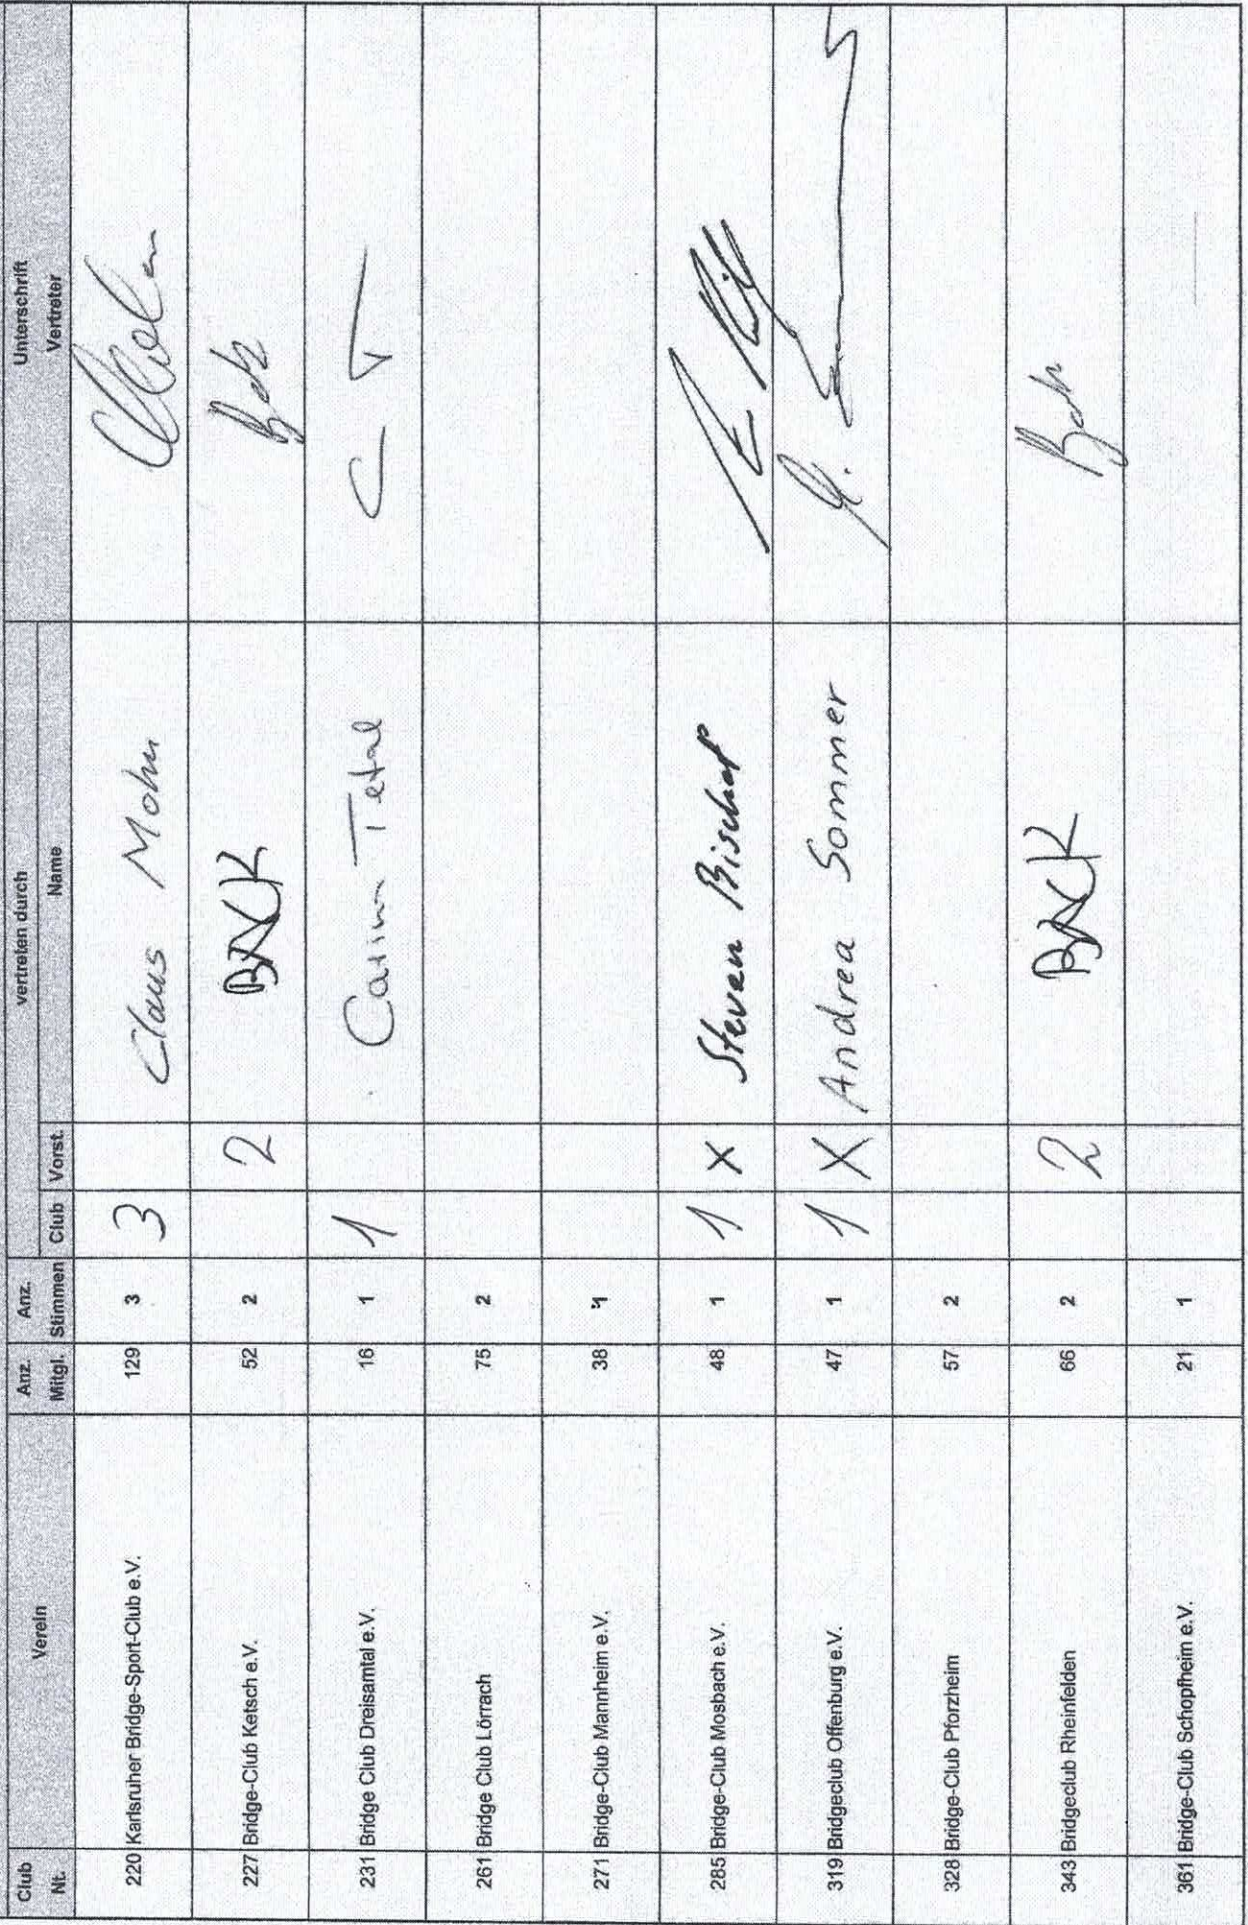 Club Nr. Verein Anz. Mitgl. Anz. Stimmen vertreten durch Unterschrift Vertreter
Club Vorst. Name
220 Karlsruher Bridge-Sport-Club e.V. 129 3 3 Claus Mohn
227 Bridge-Club Ketsch e.V. 52 2 2
231 Bridge Club Dreisamtal e.V. 16 1 1 Carina Tetal
261 Bridge Club Lörrach 75 2
271 Bridge-Club Mannheim e.V. 38 1
285 Bridge-Club Mosbach e.V. 48 1 1 X Steven Bischof
319 Bridgeclub Offenburg e.V. 47 1 1 X Andrea Sommer
328 Bridge-Club Pforzheim 57 2
343 Bridgeclub Rheinfelden 66 2 2
361 Bridge-Club Schopfheim e.V. 21 1